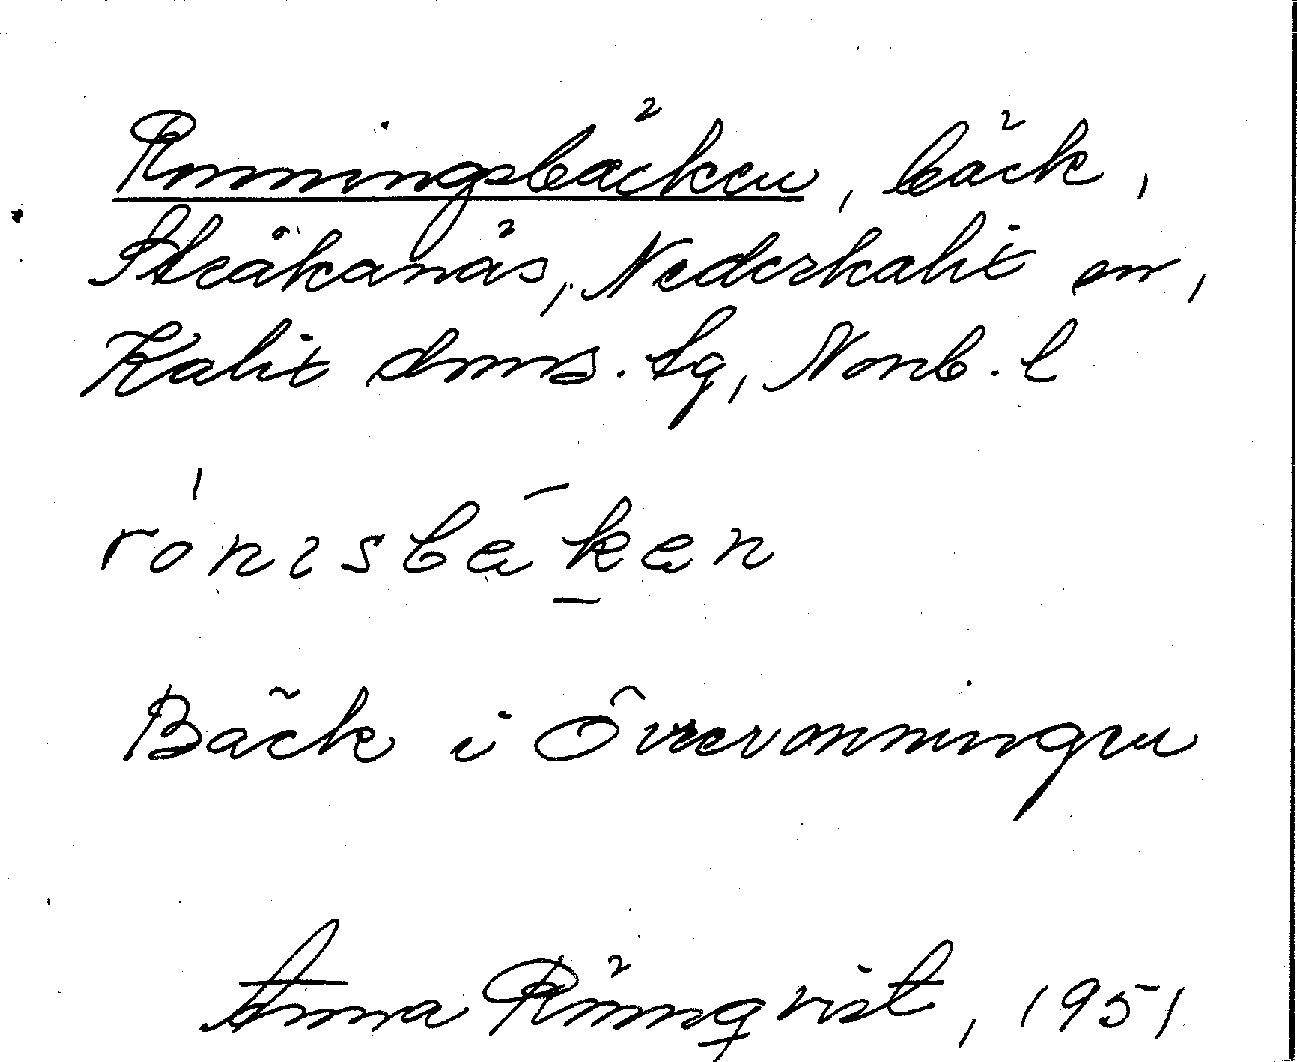 Ronningsbäcken, bäck,
Stråkanäs, Nederkalix sn,
Kalix dmns. tg, Norrb. l
rónısbækæn
Bäck i Överronningen
Anna Rönnqvist, 1951